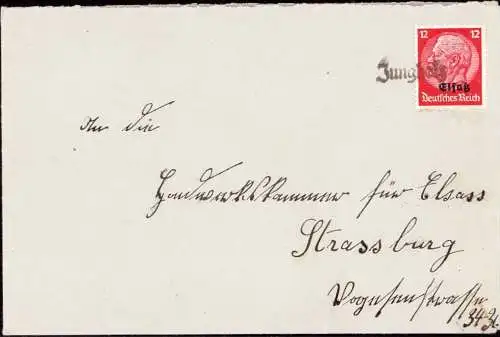 12 12
Jungholz
Elsaß
Deutsches Reich
An die
Handwerkskammer für Elsass
Strassburg
Vogesenstrasse